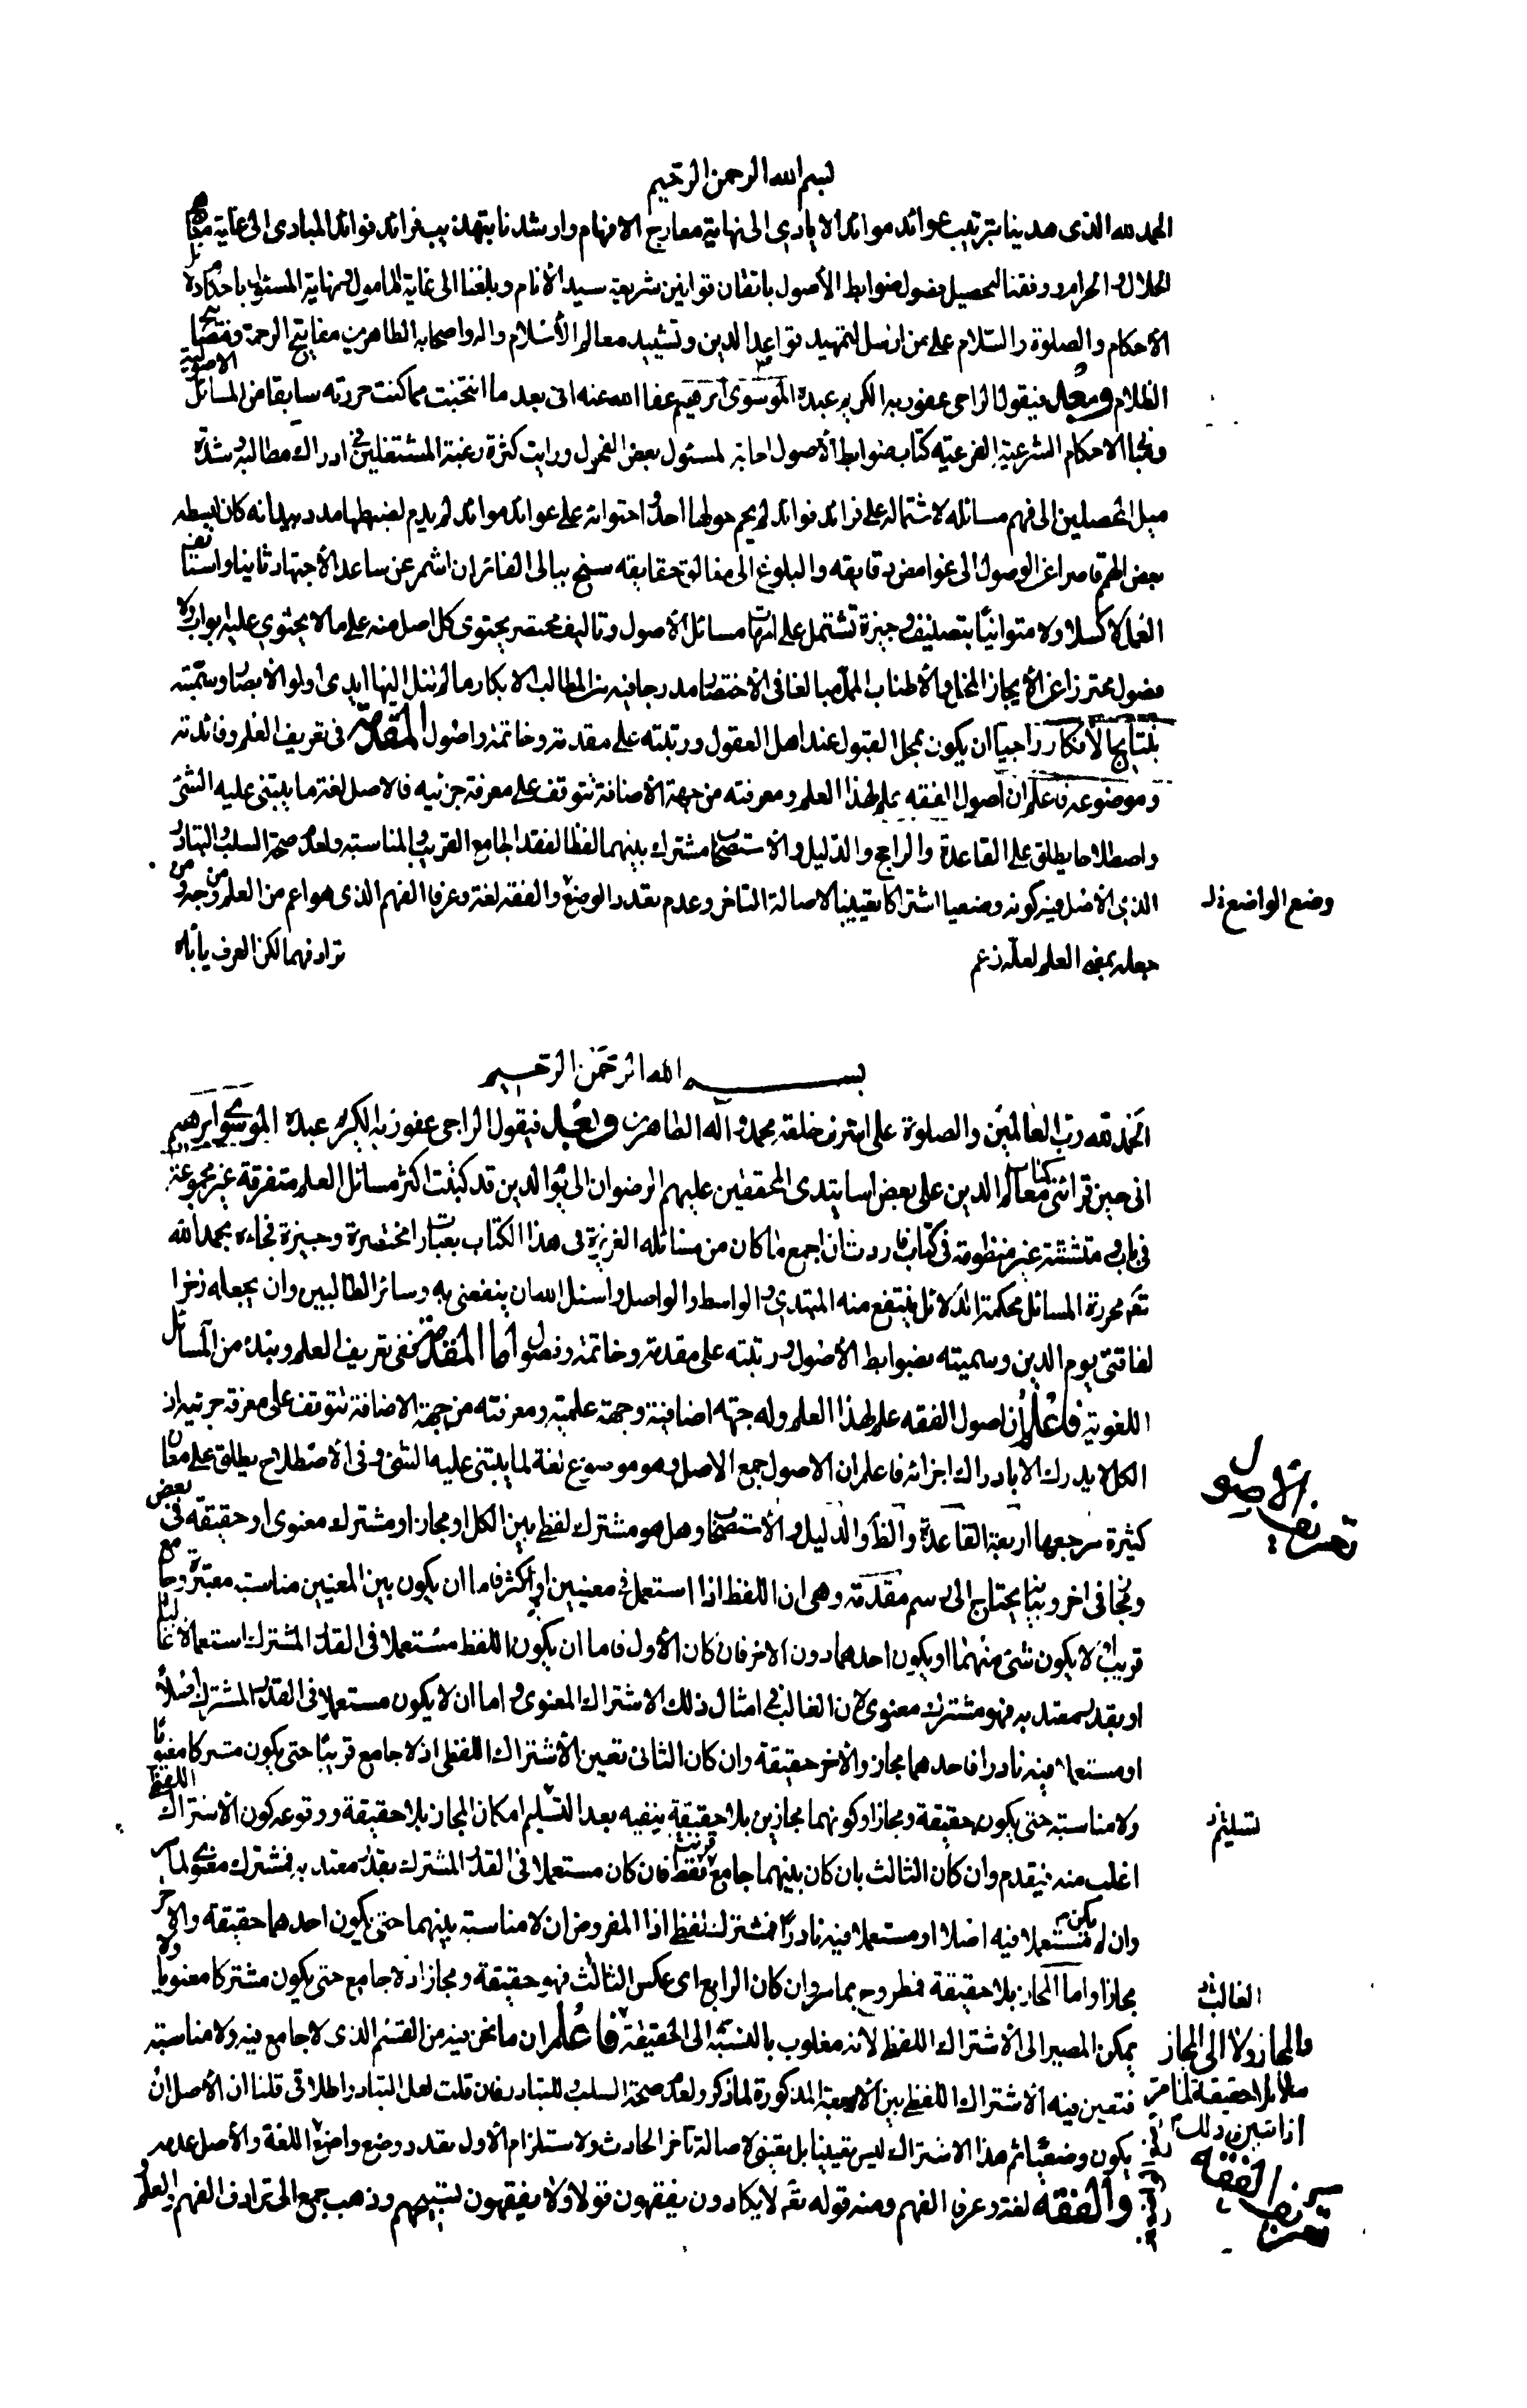 بسم الله الرحمن الرحيم
الحمد لله الذى هدينا بترتيب عوائد موائد الايادى الى نهاية معارج الافهام وارشدنا بتهذيب فرائد فوائد المبادى الى غاية
الحلال والحرام ووفقنا لتحصيل فصول ضوابط الأصول باتقان قوانين شريعة سيد الأنام وبلغنا الى غاية المأمول ونهاية المسئول باحكام
الأحكام والصلوة والسّلام على من ارسل لتمهيد قواعد الدين وتشييد معالم الأسلام واله واصحابه الطاهرين مفاتيح الرحمة ومصابيح
الظلام وبعد فيقول الراجى عفو ربه الكريم عبده الموسوى ابرهيم عفا الله عنه انى بعد ما انتخبت مما كنت حررته سابقا من المسائل الاصولية
الاحكام الشرعية الفرعية كتاب ضوابط الأصول اجابة لمسئول بعض الفحول ورايت كثرة رغبة المشتغلين فى ادراك مطالبه وشدّة
ميل المحصلين الى فهم مسائله لاشتماله على فرائد فوائد لم يحم حولها احد واحتوائه على عوائد موائد لم يدم لضبطها مدد بيد انه كان لبسطه
بعض الهمم قاصرا عن الوصول الى غوامض دقايقه والبلوغ الى مغالق حقايقه سنح ببالى الفاتر ان اشمر عن ساعد الأجتهاد ثانيا واستانف
العمل لا كسلا ولا متوانيًا بتصنيف وجيزة تشتمل على امهات مسائل الأصول وتاليف مختصر يحتوى كل اصل منه على ما لا يحتوي عليه ابواب ولا
فصول محترزا عن الأيجاز المخل والأطناب الممل مبالغا فى الأختصار مدرجا فيه من المطالب الابكار ما لم تنل اليها ايدى اولو الابصار وسمّيته
بنتايج الأفكار راجيا ان يكون بمحل القبول عند اهل العقول ورتبته على مقدمة وخاتمة واصول المقدمة فى تعريف العلم وفائدته
وموضوعه فاعلم ان اصول الفقه علم لهذا العلم ومعرفته من جهة الأضافة تتوقف على معرفة جزئيه فالاصل لغة ما يبتنى عليه الشئ
واصطلاحا يطلق على القاعدة والراجح والدّليل والاستصحاب مشترك بينهما لفظا لفقد الجامع القريب والمناسبة ولعدم صحة السلب والتبادر
الذى الأصل فيه كونه وضعيا اشتراكا تعيينيا لاصالة التاخر وعدم تعدد الوضع والفقه لغة وعرفا الفهم الذى هو اعم من العلم من وجه ومن
وضع الواضع
جعله بمعنى العلم لعلّه زعم
ترادفهما لكن العرف يأباه
بسم الله الرحمن الرحيم
الحمد لله ربّ العالمين والصلوة على اشرف خلقه محمد واله الطاهرين وبعد فيقول الراجى عفو ربه الكريم عبده الموسوى ابرهيم
انى حين قرائتى كتاب معالم الدين على بعض اساتيدى المحققين عليهم الرضوان الى يوم الدين قد كتبت اكثر مسائل العلم متفرقة غير مجموعة
فى باب متشتتة غير منظومة فى كتاب فاردت ان اجمع ما كان من مسائله الغريزة فى هذا الكتاب بعبارات مختصرة وجيزة فجاء بحمد الله
تع محررة المسائل محكمة الدلائل لينتفع منه المبتدى والواسط والواصل واسئل الله ان ينفعنى به وسائر الطالبين وان يجعله ذخرا
لفاقتى يوم الدين وسميته بضوابط الأصول ورتبته على مقدمة وخاتمة وفصول اما المقدمة ففى تعريف العلم ونبذة من المسائل
اللغوية فاعلم ان اصول الفقه علم لهذا العلم وله جهته اضافية وجهة علمية ومعرفته من جهة الاضافة تتوقف على معرفة جزئيه اذ
الكل لا يدرك الا بادراك اجزائه فاعلم ان الاصول جمع الاصل وهو موضوع لغة لما يبتنى عليه الشئ وفى الأصطلاح يطلق على معان
تعريف الاصول
كثيرة مرجعها اربعة القاعدة والظ والدليل والأستصحاب وهل هو مشترك لفظ بين الكل او مجاز او مشترك معنوى او حقيقة فى بعض
ومجاز فى اخر وبيانه يحتاج الى رسم مقدمة وهى ان اللفظ اذا استعمل فى معنيين او اكثر فاما ان يكون بين المعنيين مناسبة معتبرة وجامع
قريب او لا يكون شئ منهما او يكون احدهما دون الاخر فان كان الأول فاما ان يكون اللفظ مستعملا فى القدر المشترك استعمالا غالبا
او بقدر معتد به فهو مشترك معنوى لان الغالب فى امثال ذلك الاشتراك المعنوى واما ان لا يكون مستعملا فى القدر المشترك اصلا
او مستعملا فيه نادرا فاحدهما مجاز والأخر حقيقة وان كان الثانى تعين الأشتراك اللفظى اذ لا جامع قريبًا حتى يكون مشتركا معنويا
ولا مناسبة حتى يكون حقيقة ومجازا وكونهما مجازين بلا حقيقة ينفيه بعد التسليم امكان المجاز بلا حقيقة ووقوعه كون الاشتراك اللفظى
اغلب منه فيقدم وان كان الثالث بان كان بينهما جامع قريب فقط فان كان مستعملا فى القدر المشترك بقدر معتد به فمشترك معنوى لما مر
وان لم يكن مستعملا فيه اصلا او مستعملا فيه نادرًا فمشترك لفظى اذ المفروض ان لا مناسبة بينهما حتى يكون احدهما حقيقة والاخر
مجازا واما المجاز بلا حقيقة فمطروح بما مر وان كان الرابع اى عكس الثالث فهو حقيقة ومجاز اذ لا جامع حتى يكون مشتركا معنويا ولا
الغالب
يمكن المصير الى الأشتراك اللفظى لانه مغلوب بالنسبة الى الحقيقة فاعلم ان ما نحن فيه من القسم الذى لا جامع فيه ولا مناسبة
والمجاز ولا الى المجاز
فتعين فيه الاشتراك اللفظى بين الأربعة المذكورة لما ذكر ولعدم صحة السلب وللتبادر فان قلت لعل التبادر اطلاقى قلنا ان الأصل ان
بلا حقيقة لما مر
اذا تبين ذلك
يكون وضعيًا ثم هذا الاشتراك ليس تعيينيا بل تعينى لاصالة تاخر الحادث ولاستلزام الأول تعدد وضع واضع اللغة والأصل عدمه
والفقه لغة وعرفا الفهم ومنه قوله تع لا يكادون يفقهون قولا ولا يفقهون تسبيحهم وذهب جمع الى ترادف الفهم والعلم
تعريف الفقه